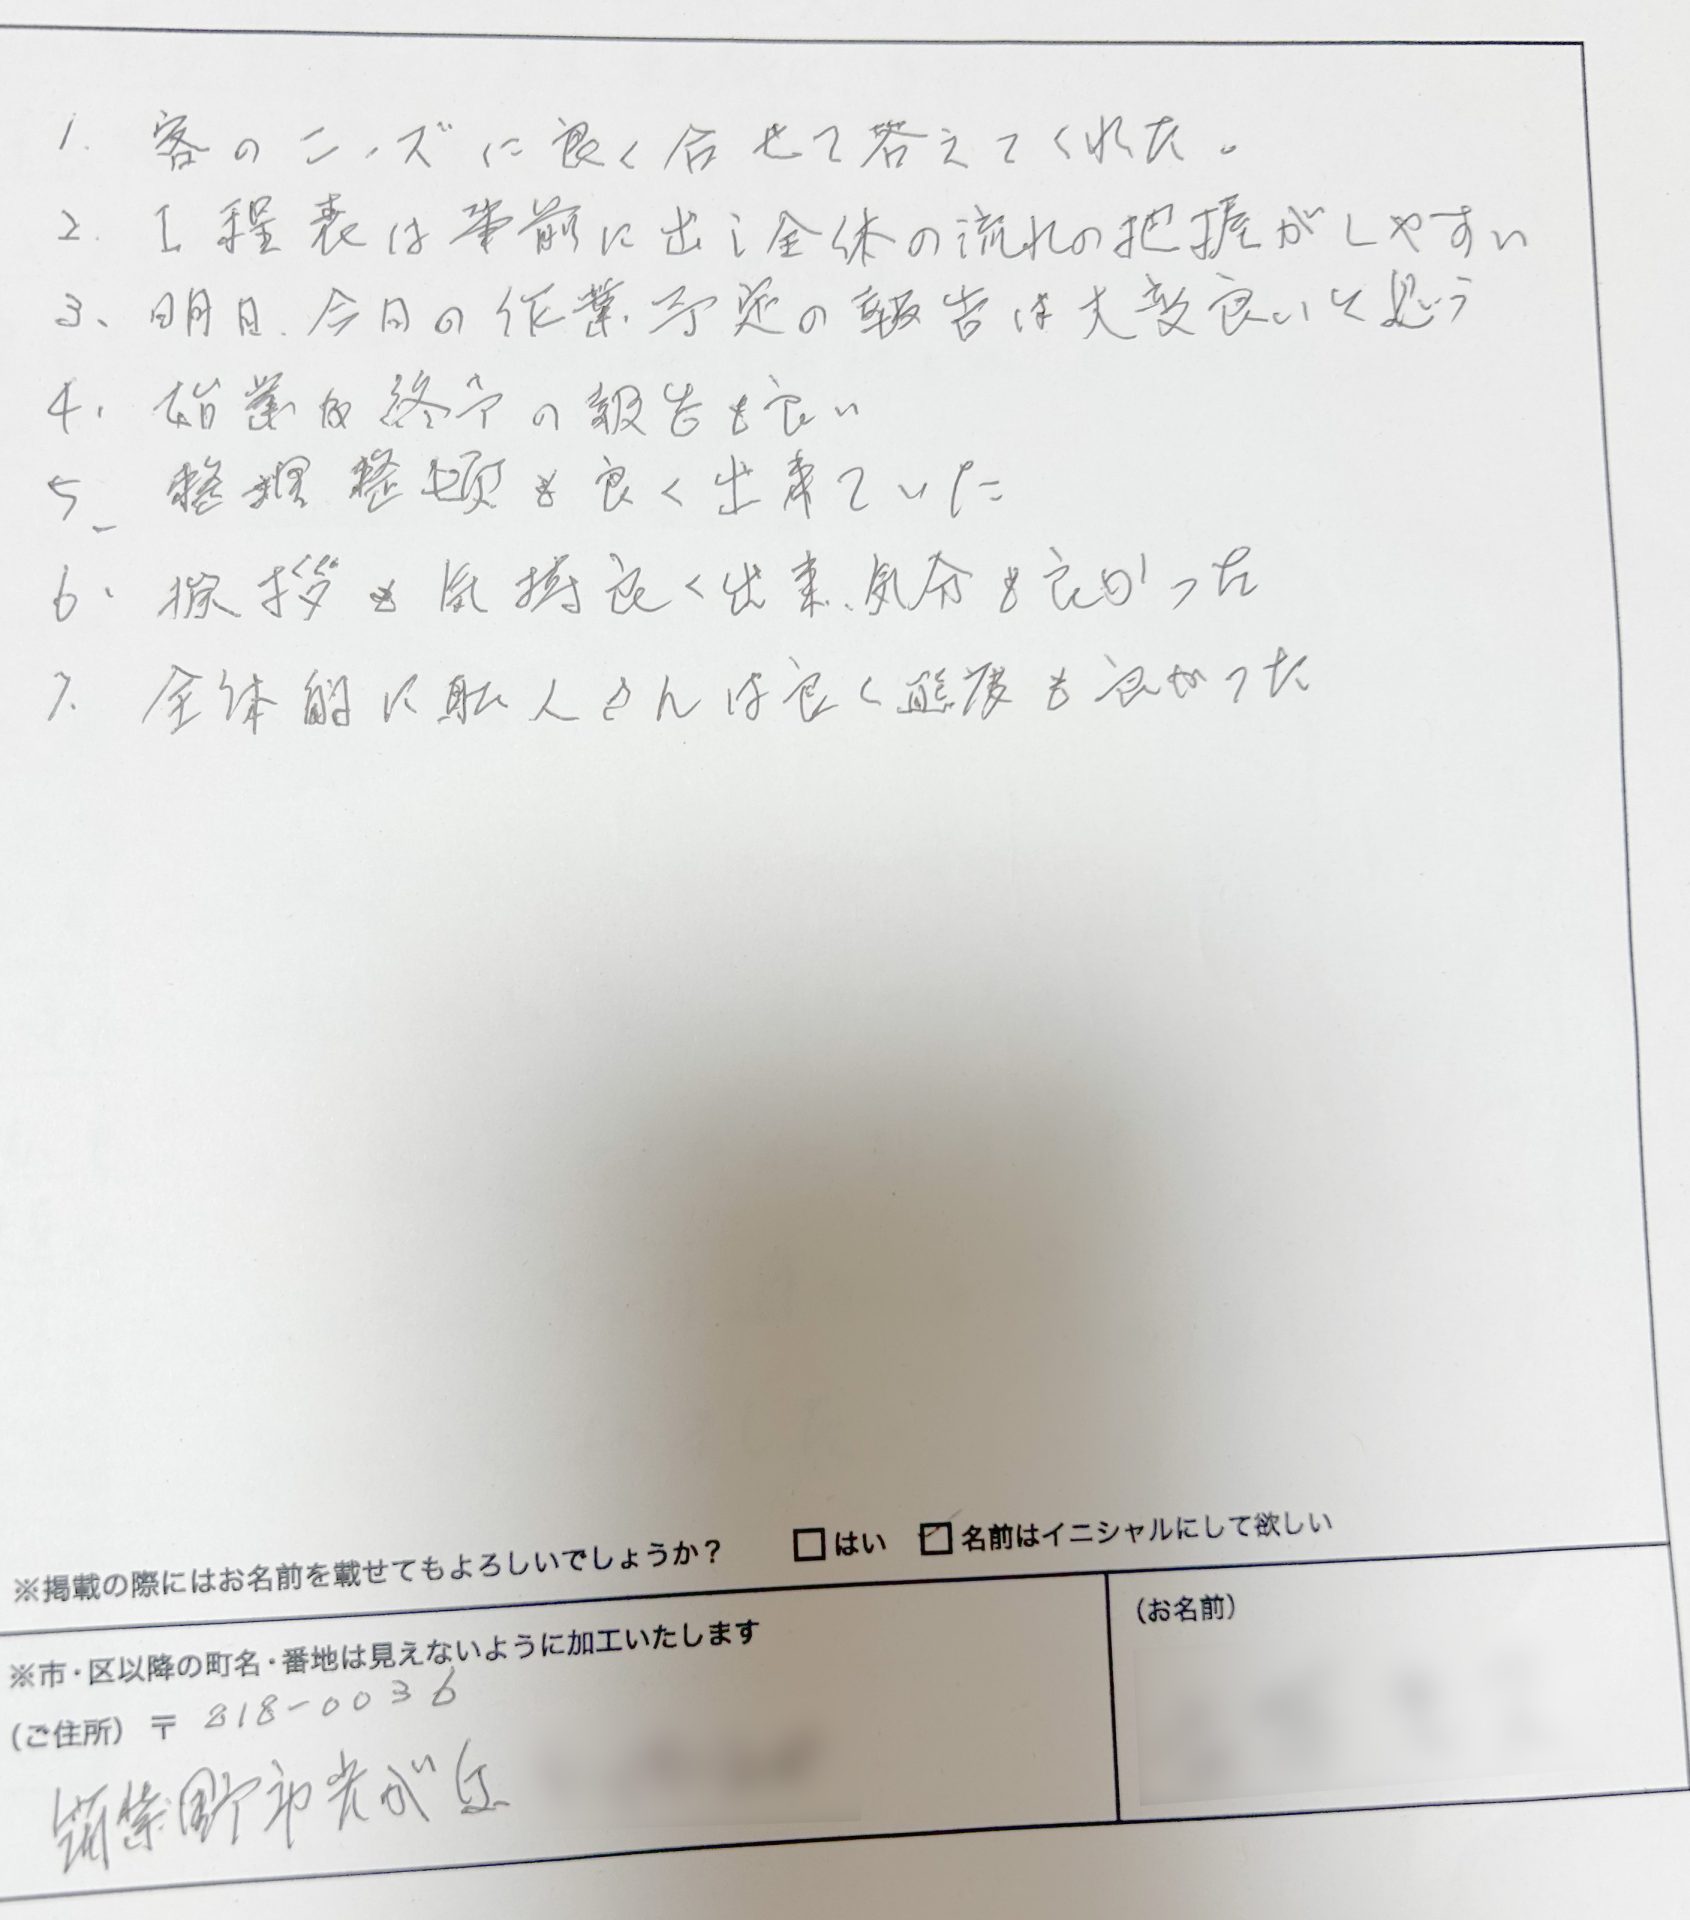 1. 客のニーズに良く合せて答えてくれた。
2. 工程表は事前に出し全体の流れの把握がしやすい
3、明日、今日の作業予定の報告は大変良いと思う
4、始業や終了の報告も良い
5_ 整理整頓も良く出来ていた
6、挨拶も気持良く出来、気分も良かった
7. 全体的に職人さんは良く態度も良かった
※掲載の際にはお名前を載せてもよろしいでしょうか? □はい ☑名前はイニシャルにして欲しい
※市・区以降の町名・番地は見えないように加工いたします
(お名前)
(ご住所) 〒 818-0036
筑紫野市光が丘